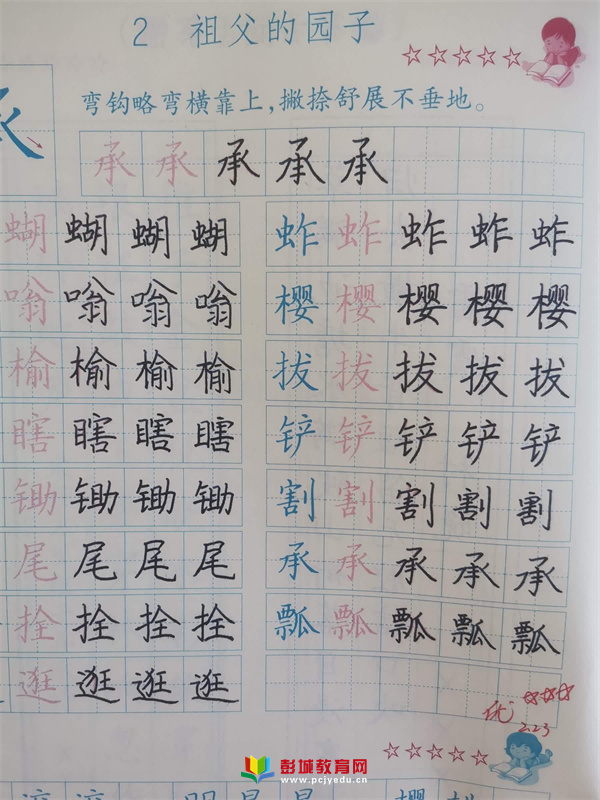 2 祖父的园子
弯钩略弯横靠上，撇捺舒展不垂地。
承
承承承承承
蝴蝴蝴蝴 蚱蚱蚱蚱蚱
嗡嗡嗡嗡 樱樱樱樱樱
榆榆榆榆 拔拔拔拔拔
瞎瞎瞎瞎 铲铲铲铲铲
锄锄锄锄 割割割割割
尾尾尾尾 承承承承承
拴拴拴拴 瓢瓢瓢瓢瓢
逛逛逛逛
优
2.23
彭城教育网
www.pcjyedu.cn